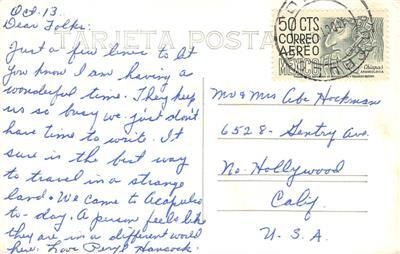 Oct. 13.
Dear Folks:
TARJETA POSTAL
Just a few lines to let
you know I am having a
wonderful time. They keep
us so busy we just don't
have time to write. It
sure is the best way
to travel in a strange
land. We came to Acapulco
to-day. A person feels like
they are in a different world
here. Love Peryl Hancock.
50 CTS
CORREO
AEREO
MEXICO
Chiapas
ARQUEOLOGIA
Mr & Mrs Abe Hockman
6528- Gentry Ave.
No. Hollywood
Calif.
U.S.A.